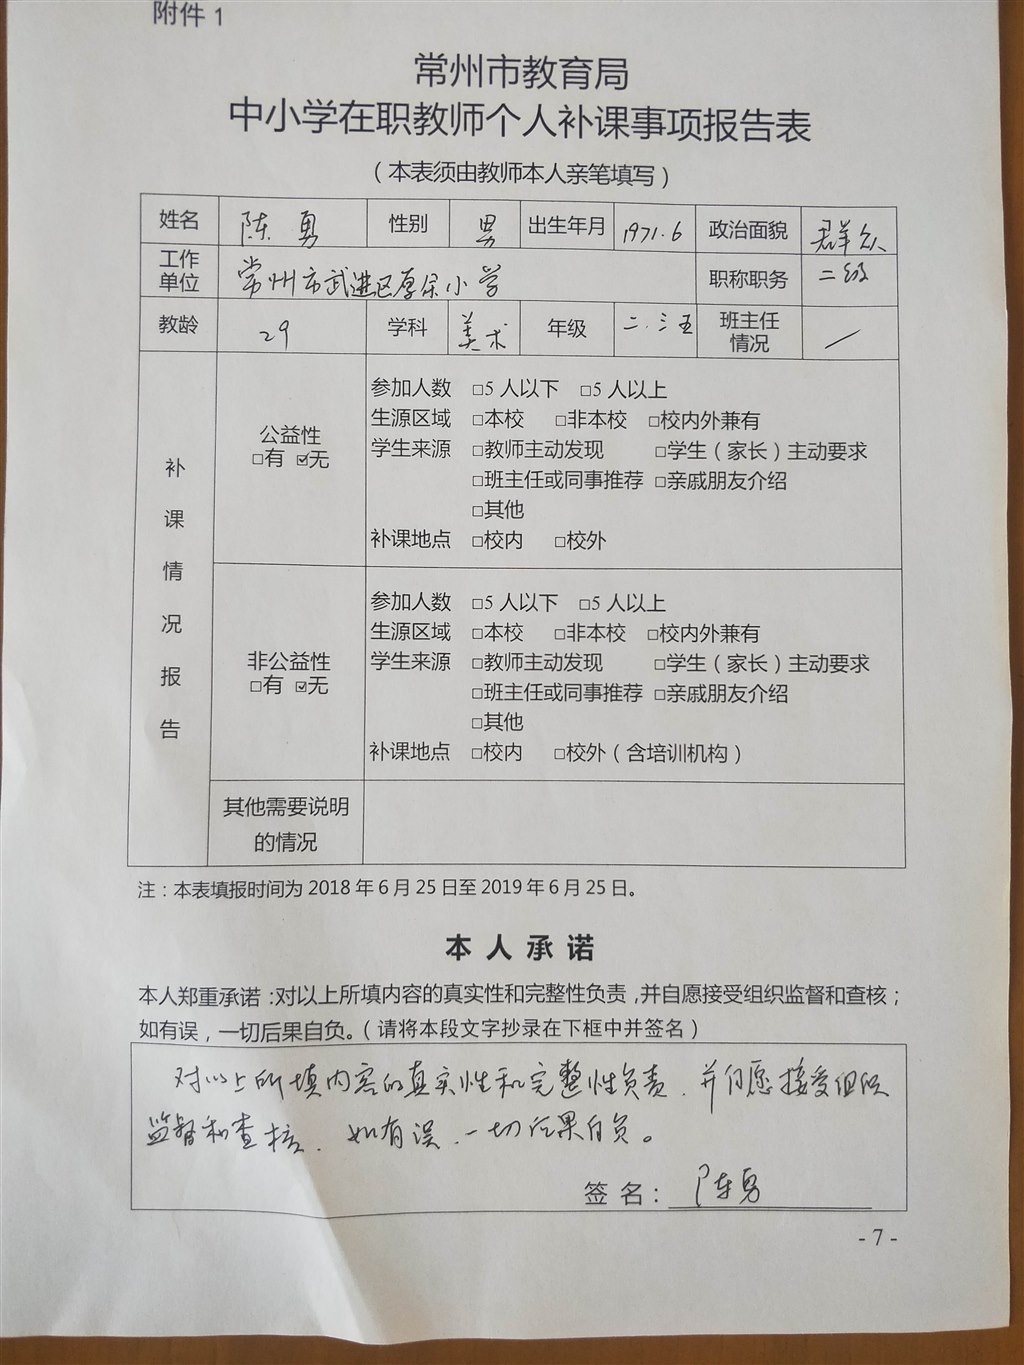 附件 1
常州市教育局
中小学在职教师个人补课事项报告表
（本表须由教师本人亲笔填写）
姓名 陈勇 性别 男 出生年月 1971.6 政治面貌 群众
工作单位 常州市武进区厚余小学 职称职务 二级
教龄 29 学科 美术 年级 二.三五 班主任情况 /
补课情况报告
公益性
□有 ☑无
参加人数 □5 人以下 □5 人以上
生源区域 □本校 □非本校 □校内外兼有
学生来源 □教师主动发现 □学生（家长）主动要求
□班主任或同事推荐 □亲戚朋友介绍
□其他
补课地点 □校内 □校外
非公益性
□有 ☑无
参加人数 □5 人以下 □5 人以上
生源区域 □本校 □非本校 □校内外兼有
学生来源 □教师主动发现 □学生（家长）主动要求
□班主任或同事推荐 □亲戚朋友介绍
□其他
补课地点 □校内 □校外（含培训机构）
其他需要说明
的情况
注：本表填报时间为 2018 年 6 月 25 日至 2019 年 6 月 25 日。
本 人 承 诺
本人郑重承诺：对以上所填内容的真实性和完整性负责，并自愿接受组织监督和查核；
如有误，一切后果自负。（请将本段文字抄录在下框中并签名）
对以上所填内容的真实性和完整性负责，并自愿接受组织
监督和查核．如有误，一切后果自负。
签 名： 陈勇
- 7 -